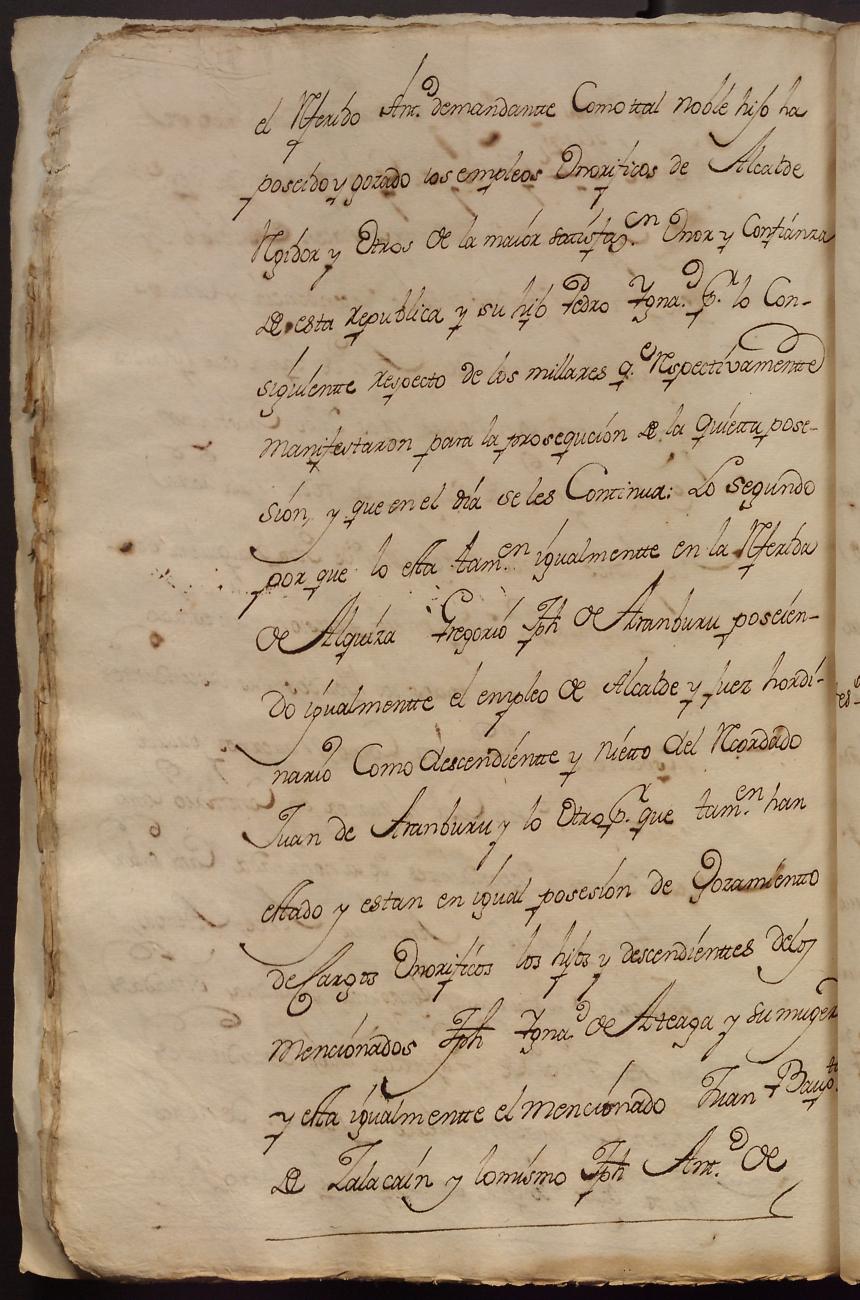 el Referido Ant.º demandantte Como ttal noble hijo ha
poseido y gozado los empleos Onorificos de Alcalde
Regidor y Otros de la maior satisfaz.on Onor y Confianza
de esta republica y su hijo Pedro Ygna.º p.r lo Con-
siguientte respecto de los millares q.e respectivamentte
manifestaron para la prosequcion de la quietta pose-
sion, y que en el dia se les Continua: Lo segundo
por que lo esta tam.en igualmentte en la Referida
de Alquiza Gregorio Jph de Aranburu poseien-
do igualmentte el enpleo de Alcalde y Juez hordi-
nario Como descendientte y nietto del Recordado
Juan de Aranburu y lo Otro p.r que tam.en han
estado y estan en igual posesion de Gozamientto
de Cargos Onorificos los hijos y descendienttes delos
mencionados Jph Ygna.º de Arteaga y su muger
y esta igualmentte el mencionado Juan Baup.ta
de Zalacain y lo mismo Jph Ant.º de